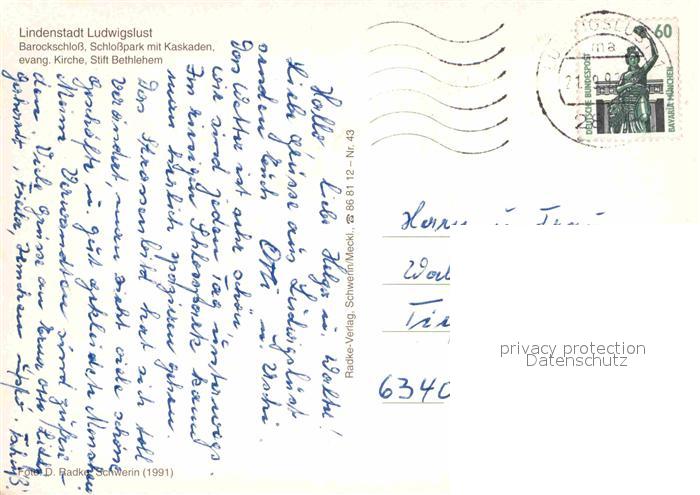 Lindenstadt Ludwigslust
Barockschloß, Schloßpark mit Kaskaden,
evang. Kirche, Stift Bethlehem
Hallo liebe Helga u. Walter!
Liebe Grüsse aus Ludwigslust
senden Euch Otti u. Uschi.
Das Wetter ist sehr schön,
wir sind jeden Tag unterwegs.
Im riesigen Schlosspark kann
man herrlich spazieren gehen.
Das Strassenbild hat sich toll
verändert, man sieht viele schöne
Geschäfte u. gut gekleidete Menschen
Meine Verwandten sind zufrie-
den. Viele Grüsse an Eure
Foto: D. Radke, Schwerin (1991)
Radke-Verlag, Schwerin/Meckl., ☎ 86 81 12 – Nr. 43
60
DEUTSCHE BUNDESPOST
BAVARIA MÜNCHEN
Herrn u. Frau
Wal
6340
privacy protection
Datenschutz